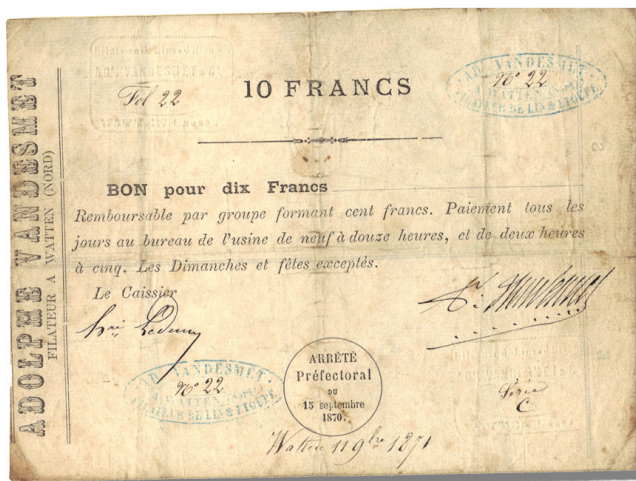 ADOLPHE VANDESMET
FILATEUR A WATTEN (NORD)
Fol 22
10 FRANCS
AD. VANDESMET
N° 22
A WATTEN (Nord)
FILATEUR DE LIN & ETOUPE
BON pour dix Francs
Remboursable par groupe formant cent francs. Paiement tous les
jours au bureau de l'usine de neuf à douze heures, et de deux heures
à cinq. Les Dimanches et fêtes exceptés.
Le Caissier
AD. VANDESMET
N° 22
A WATTEN (Nord)
FILATEUR DE LIN & ETOUPE
ARRÊTÉ
Préfectoral
DU
15 septembre
1870.
Série
C
Watten 11 9bre 1871